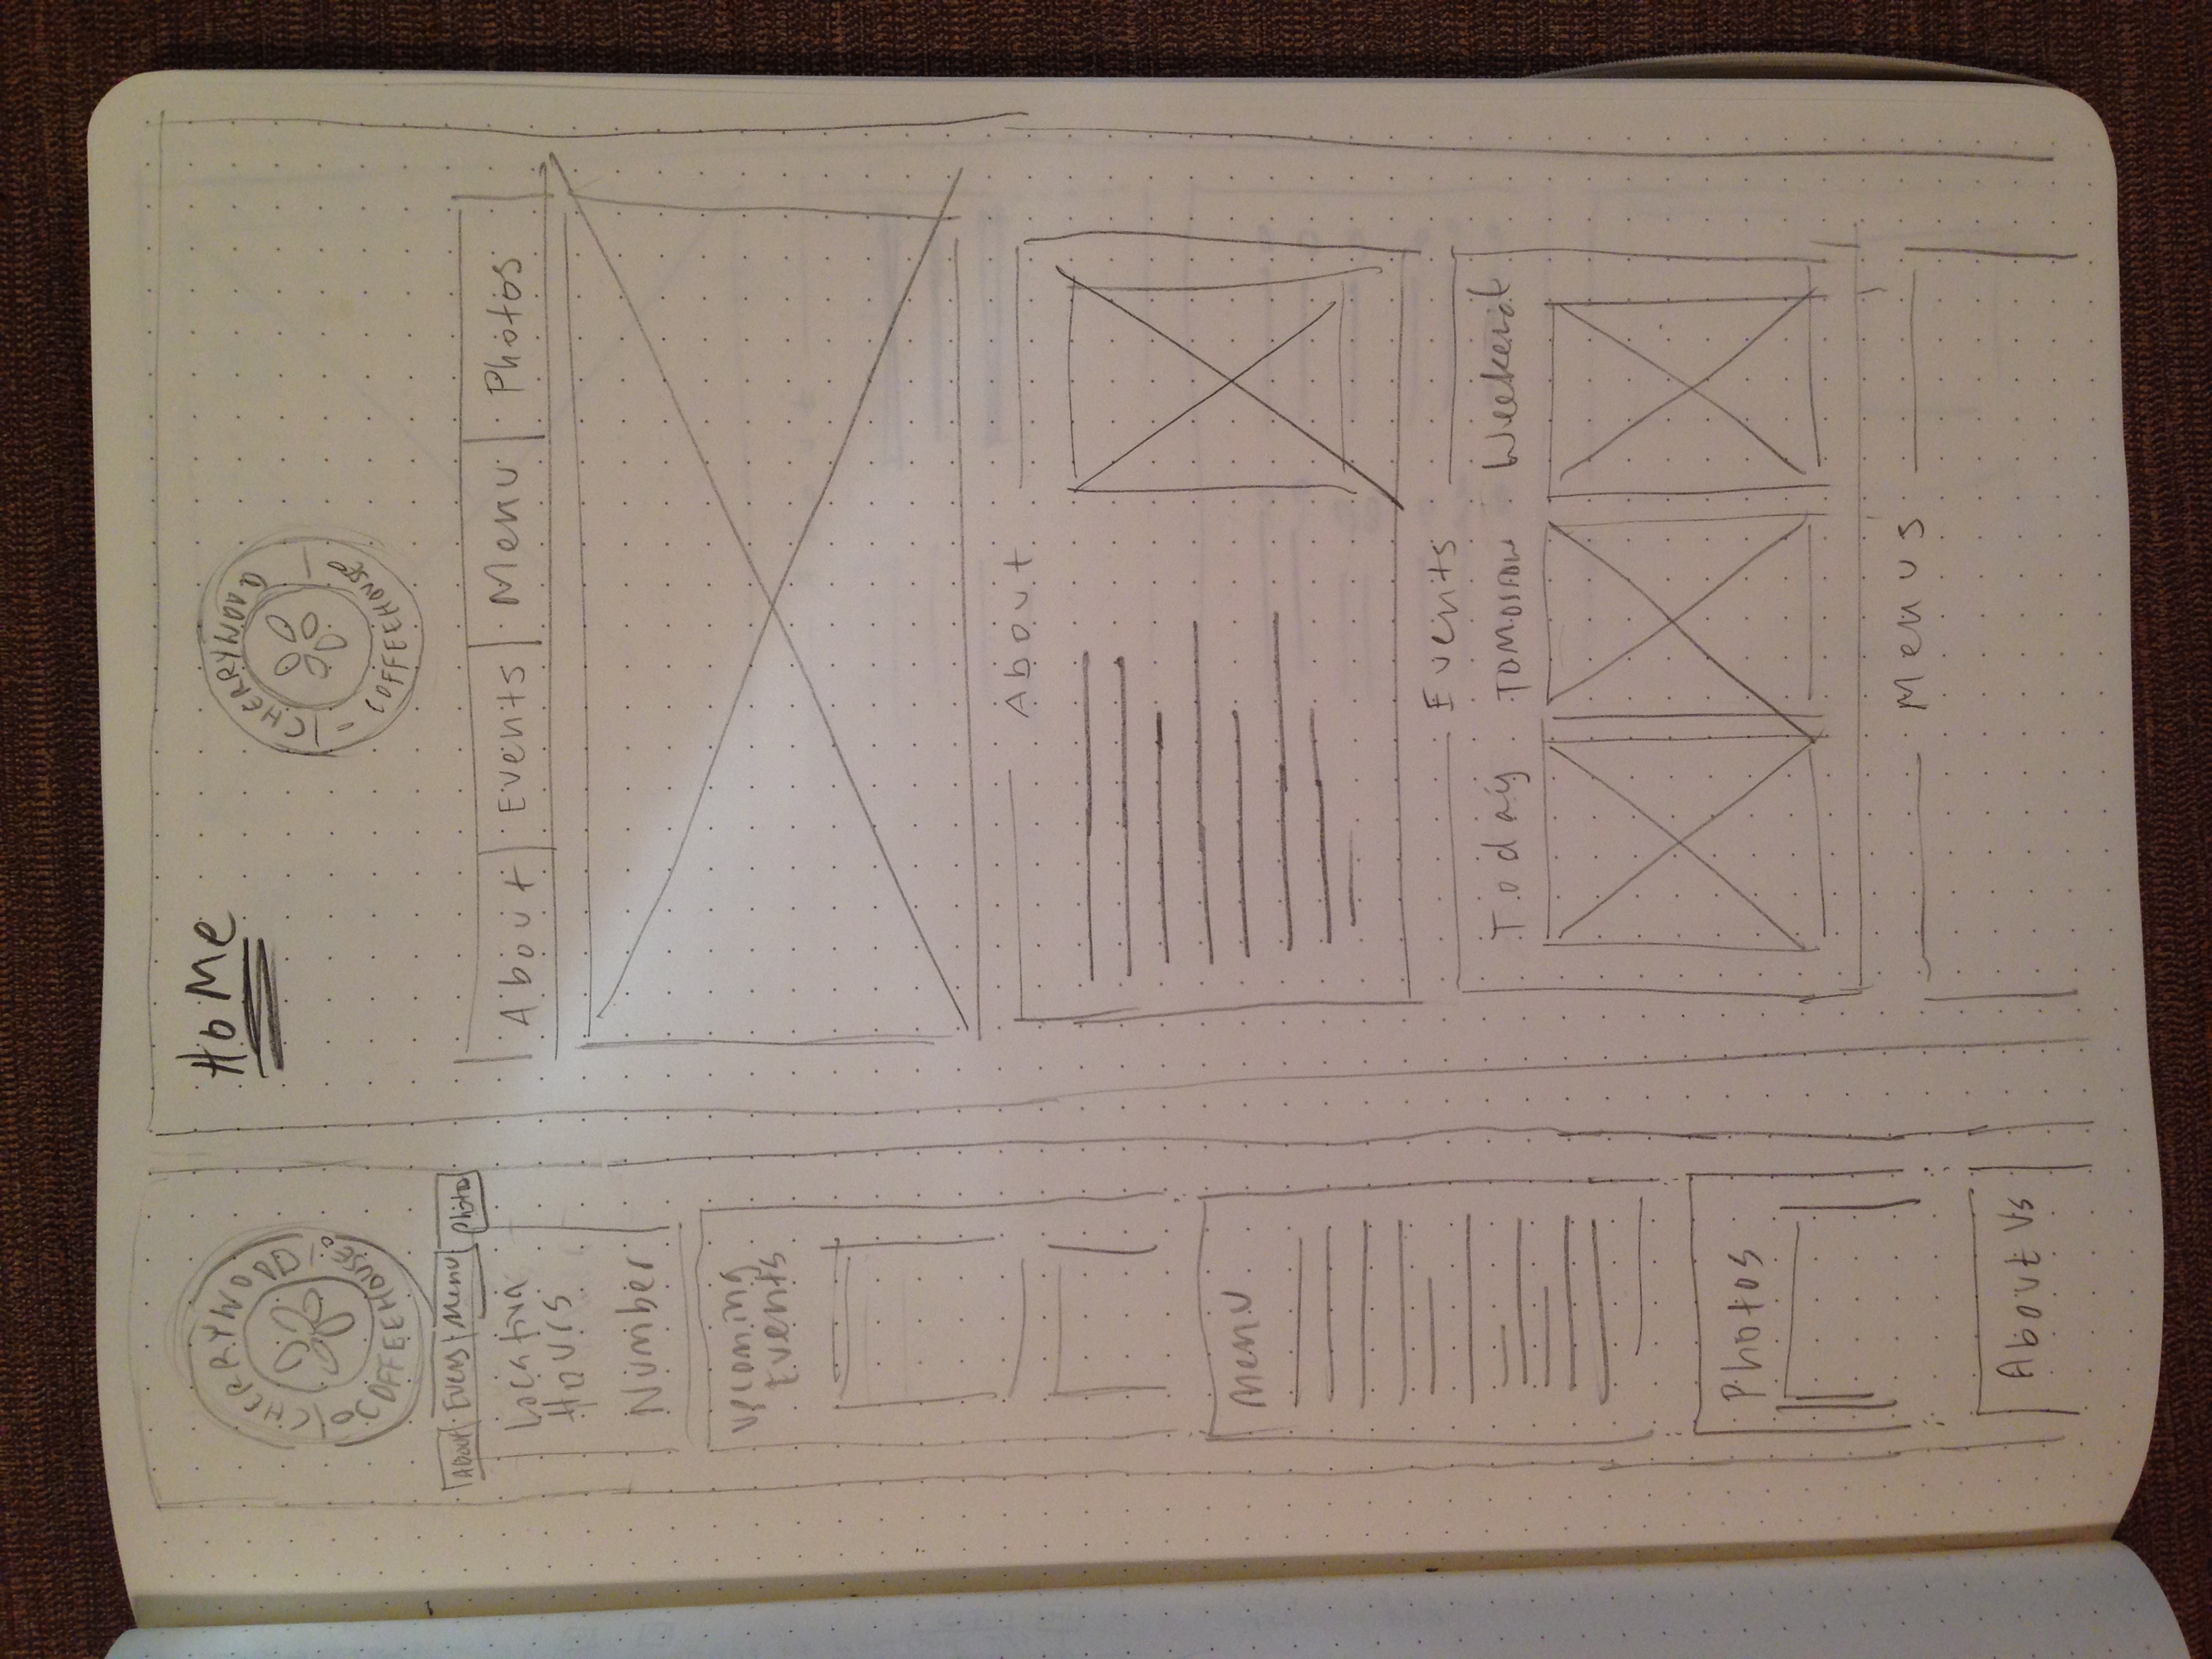 CHERRYWOOD
COFFEEHOUSE
About Events Menu Photos
Location
Hours
Number
Upcoming
Events
Menu
Photos
About Us
HoMe
CHERRYWOOD
COFFEEHOUSE
About Events Menu Photos
About
Events
Today Tomorrow Weekend
Menus